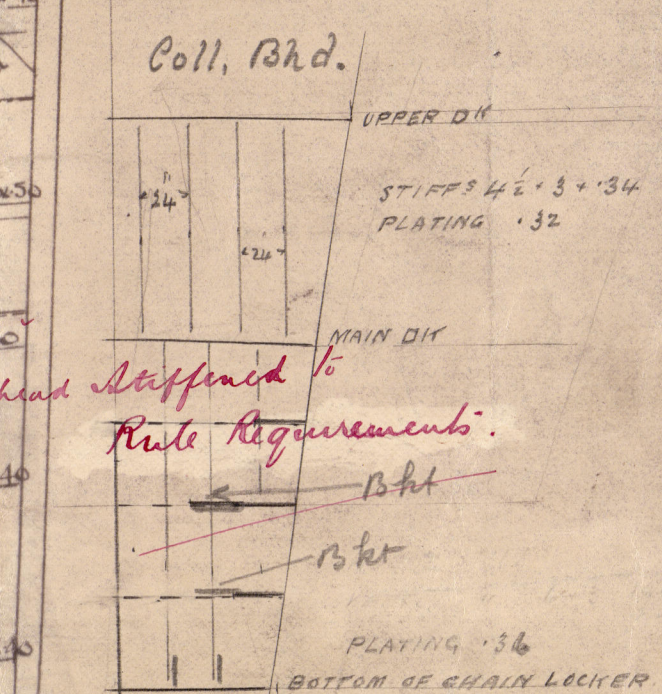 Coll. Bhd.
UPPER DK
.50
24"
STIFFS 4½ + 3 + .34
PLATING .32
24"
MAIN DK
head Stiffened to
Rule Requirements.
Bkt
Bkt
PLATING .36
BOTTOM OF CHAIN LOCKER